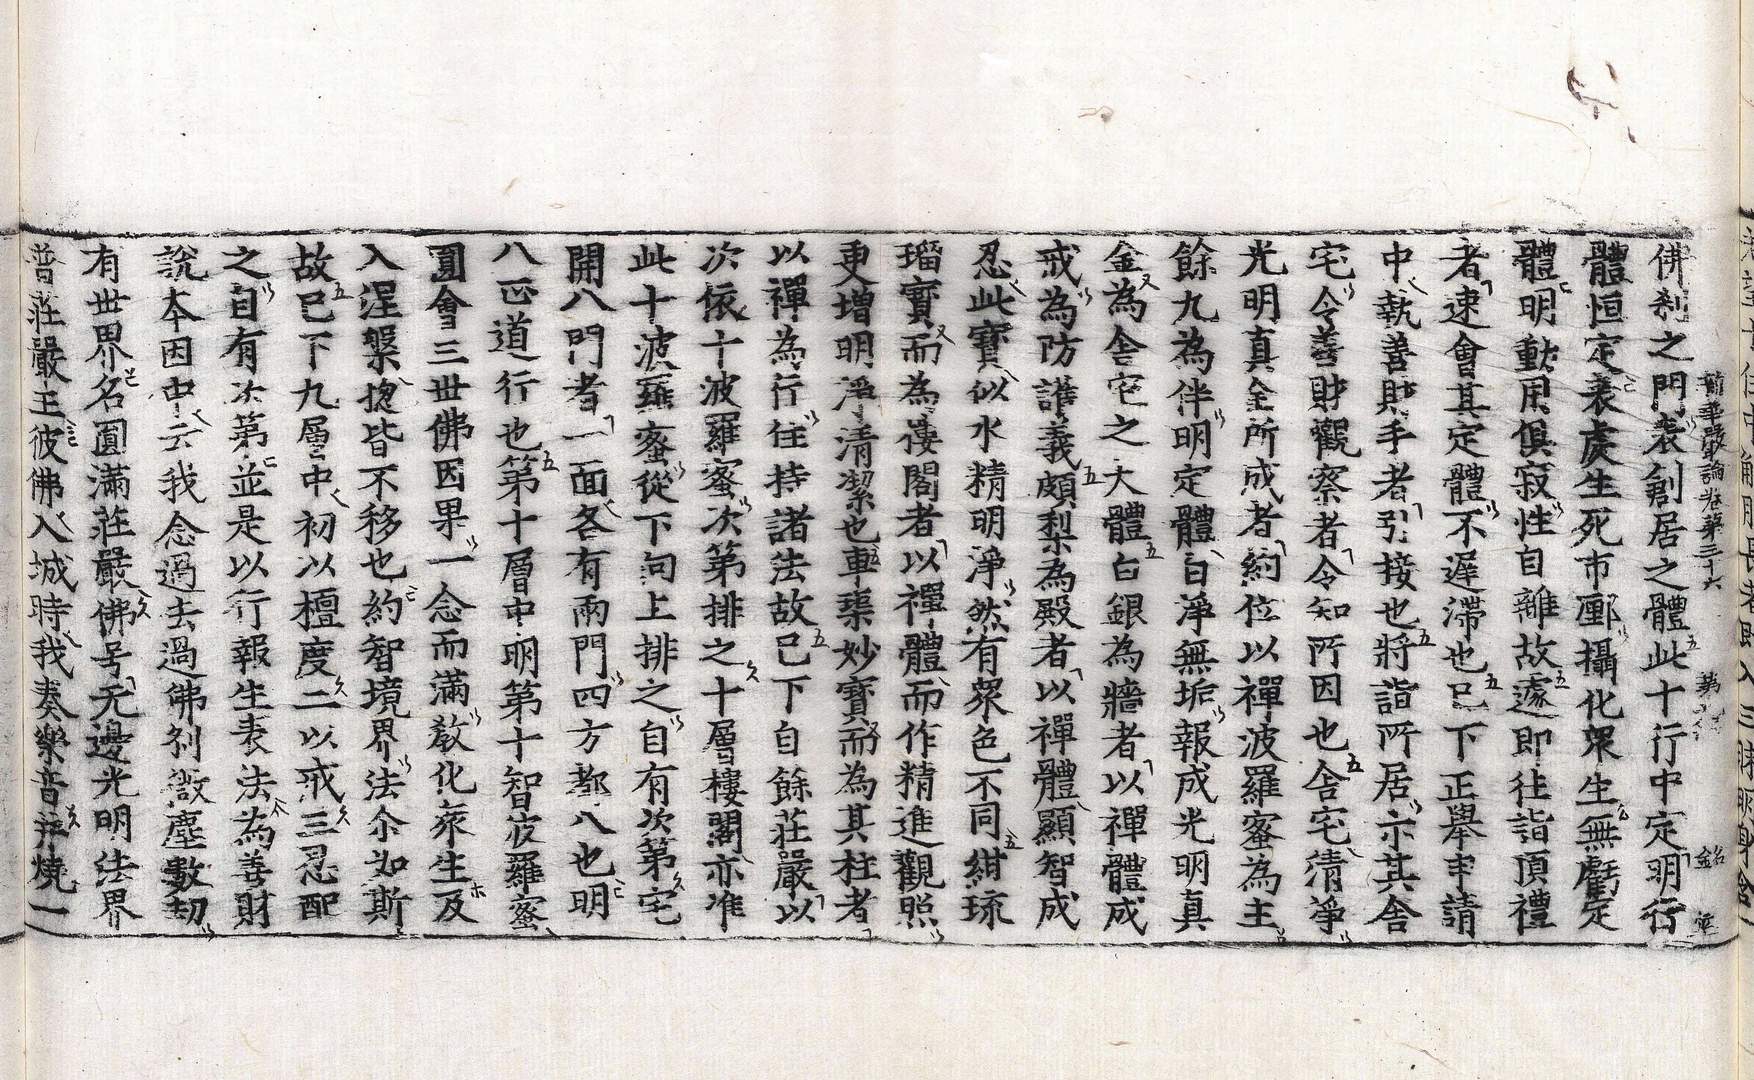 新華嚴論卷第三十六
佛刹之門表創居之體此十行中定明行
體恒定表處生死市鄽攝化衆生無虧定
體明動用俱寂性自離故遂即往詣頂禮
者速會其定體不遲滯也已下正舉申請
中執善財手者引接也將詣所居示其舍
宅令善財觀察者令知所因也舍宅清淨
光明真金所成者約位以禪波羅蜜為主
餘九為伴明定體白淨無垢報成光明真
金為舍宅之大體白銀為牆者以禪體成
戒為防護義頗梨為殿者以禪體顯智成
忍此寶似水精明淨然有衆色不同紺琉
璃寶而為樓閣者以禪體而作精進觀照
更增明淨清潔也車璖妙寶而為其柱者
以禪為行住持諸法故已下自餘莊嚴以
次依十波羅蜜次第排之十層樓閣亦准
此十波羅蜜從下向上排之自有次第宅
開八門者一面各有兩門四方都八也明
八正道行也第十層中明第十智波羅蜜
圓會三世佛因果一念而滿教化衆生及
入涅槃揔皆不移也約智境界法尒如斯
故已下九層中初以檀度二以戒三忍配
之自有次第並是以行報生表法為善財
說本因中云我念過去過佛刹微塵數劫
有世界名圓滿莊嚴佛号无邊光明法界
普莊嚴王彼佛入城時我奏樂音并燒一